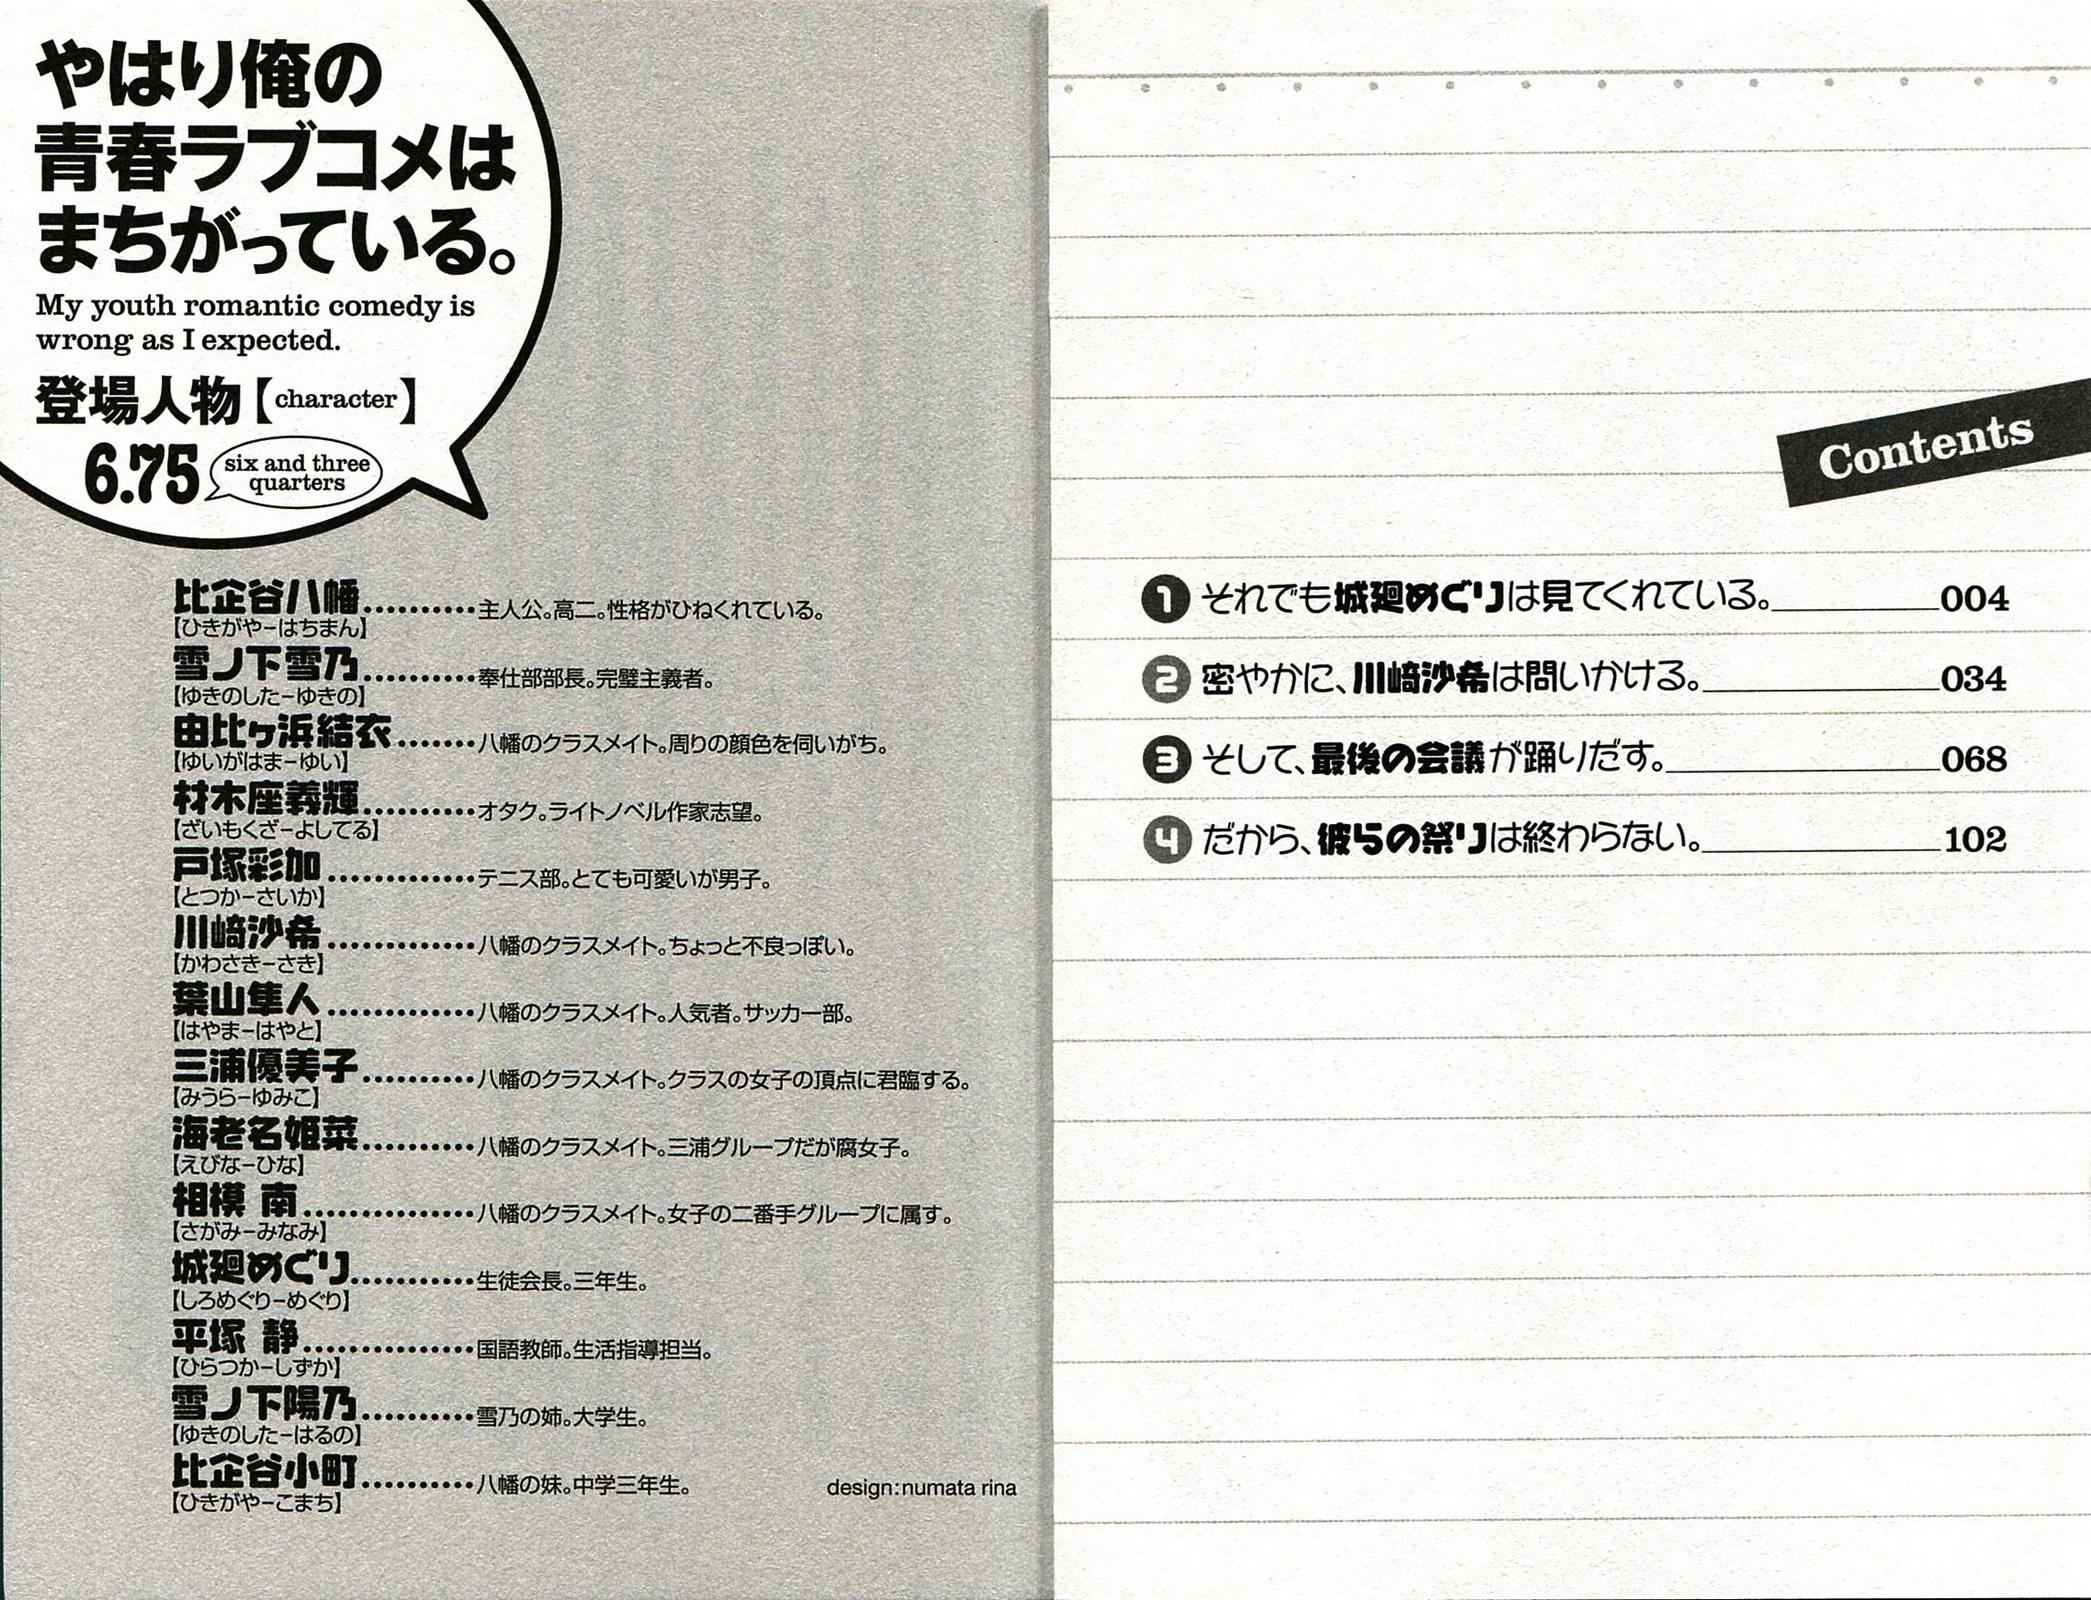 やはり俺の
青春ラブコメは
まちがっている。
My youth romantic comedy is
wrong as I expected.
登場人物【character】
6.75 six and three
quarters
比企谷八幡..........主人公。高二。性格がひねくれている。
【ひきがや−はちまん】
雪ノ下雪乃..........奉仕部部長。完璧主義者。
【ゆきのした−ゆきの】
由比ヶ浜結衣.......八幡のクラスメイト。周りの顔色を伺いがち。
【ゆいがはま−ゆい】
材木座義輝..........オタク。ライトノベル作家志望。
【ざいもくざ−よしてる】
戸塚彩加.............テニス部。とても可愛いが男子。
【とつか−さいか】
川﨑沙希.............八幡のクラスメイト。ちょっと不良っぽい。
【かわさき−さき】
葉山隼人.............八幡のクラスメイト。人気者。サッカー部。
【はやま−はやと】
三浦優美子..........八幡のクラスメイト。クラスの女子の頂点に君臨する。
【みうら−ゆみこ】
海老名姫菜..........八幡のクラスメイト。三浦グループだが腐女子。
【えびな−ひな】
相模 南...............八幡のクラスメイト。女子の二番手グループに属す。
【さがみ−みなみ】
城廻めぐり...........生徒会長。三年生。
【しろめぐり−めぐり】
平塚 静...............国語教師。生活指導担当。
【ひらつか−しずか】
雪ノ下陽乃..........雪乃の姉。大学生。
【ゆきのした−はるの】
比企谷小町..........八幡の妹。中学三年生。
【ひきがや−こまち】
design:numata rina
Contents
1 それでも城廻めぐりは見てくれている。 004
2 密やかに、川﨑沙希は問いかける。 034
3 そして、最後の会議が踊りだす。 068
4 だから、彼らの祭りは終わらない。 102